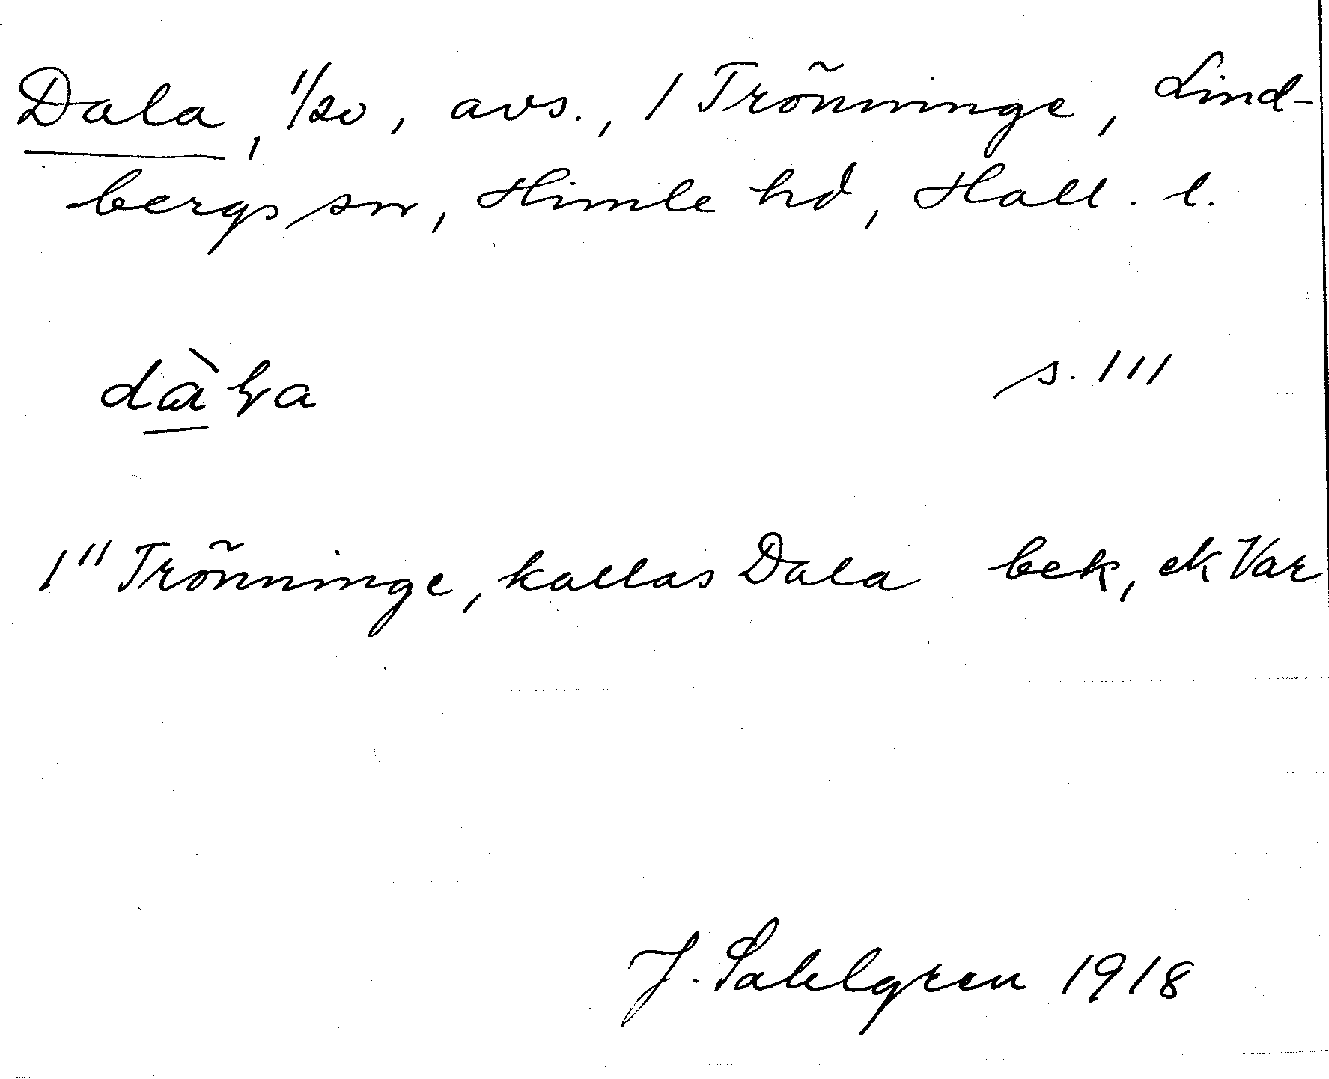 Dala, 1/20, avs., 1 Trönninge, Lind-
bergs sn, Himle hd, Hall. l.
dàɽa s. 111
1" Trönninge, kallas Dala bek, ek Var
J. Sahlgren 1918